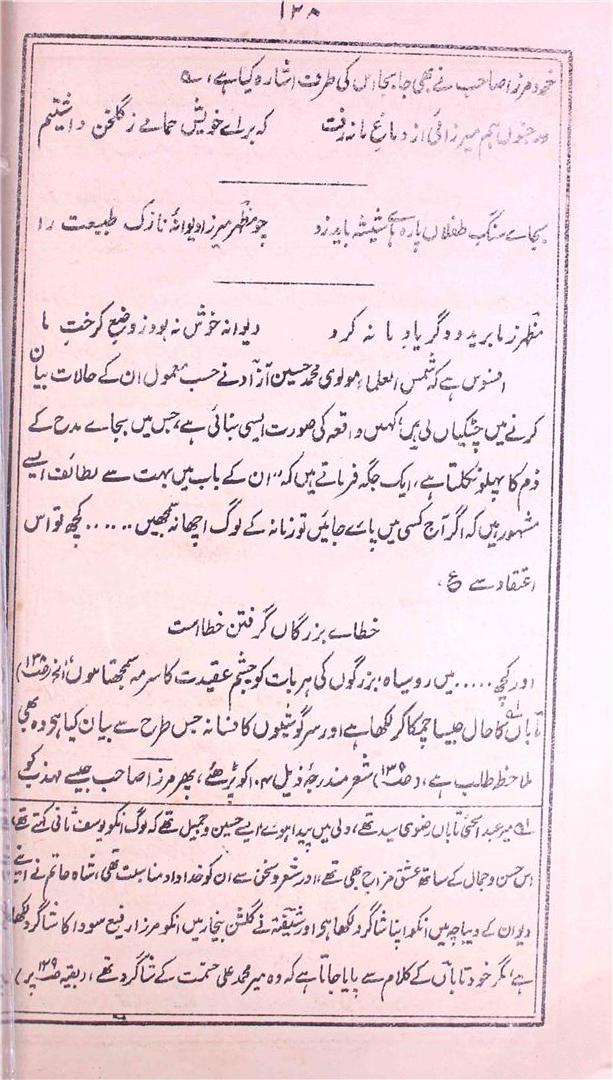 ۱۲۸
خود مرزا صاحب نے بھی جا بجا اس کی طرف اشارہ کیا ہے، ؎
در جنوں ہم میرزائی از دماغِ ما نہ رفت کہ براے خویش حمامے ز گلخن داشتیم
بجاے سنگِ طفلاں پارہ ہاے شیشہ باید زد چو مظہر میرزا دیوانۂ نازک طبیعت را
مظہر ز ما برید و دگر یادِ ما نہ کرد دیوانہ خوش نہ بود ز وضعِ کرختِ ما
افسوس ہے کہ شمس العلماء مولوی محمد حسین آزاد نے حسب معمول ان کے حالات بیان
کرنے میں چٹکیاں لی ہیں، کہیں واقعہ کی صورت ایسی بنائی ہے، جس میں بجاے مدح کے
ذم کا پہلو نکلتا ہے، ایک جگہ فرماتے ہیں کہ "ان کے باب میں بہت سے لطائف ایسے
مشہور ہیں کہ اگر آج کسی میں پاے جائیں تو زمانہ کے لوگ اچھا نہ سمجھیں ...... کچھ تو اس
اعتقاد سے ع،
خطاے بزرگاں گرفتن خطا است
اور کچھ ..... میں روسیاہ بزرگوں کی ہر بات کو چشم عقیدت کا سرمہ سمجھتا ہوں" الخ (ص۱۳۸)
تاباں کا حال جیسا چمکا کر لکھا ہے اور سرگوشیوں کا فسانہ جس طرح سے بیان کیا ہو وہ بھی
ملاحظہ طلب ہے، (ص۱۳۹) شعر مندرجۂ ذیل ۱۰۴ کو پڑھئے، پھر مرزا صاحب جیسے مہذب کے
لہ میر عبد الحئی تاباں رضوی سید تھے، دلی میں پیدا ہوے ایسے حسین و جمیل تھے کہ لوگ انکو یوسف ثانی کہتے تھے،
اس حسن و جمال کے ساتھ عشق مزاج بھی تھے، اور شعر و سخن سے ان کو خداداد مناسبت تھی، شاہ حاتم نے اپنے
دیوان کے دیباچہ میں انکو اپنا شاگرد لکھا ہو اور شیفتہ نے گلشن بیخار میں انکو مرزا رفیع سودا کا شاگرد لکھا
ہے، مگر خود تاباں کے کلام سے پایا جاتا ہے کہ وہ میر محمد علی حشمت کے شاگرد تھے، (بقیہ ص۱۲۹ پر)